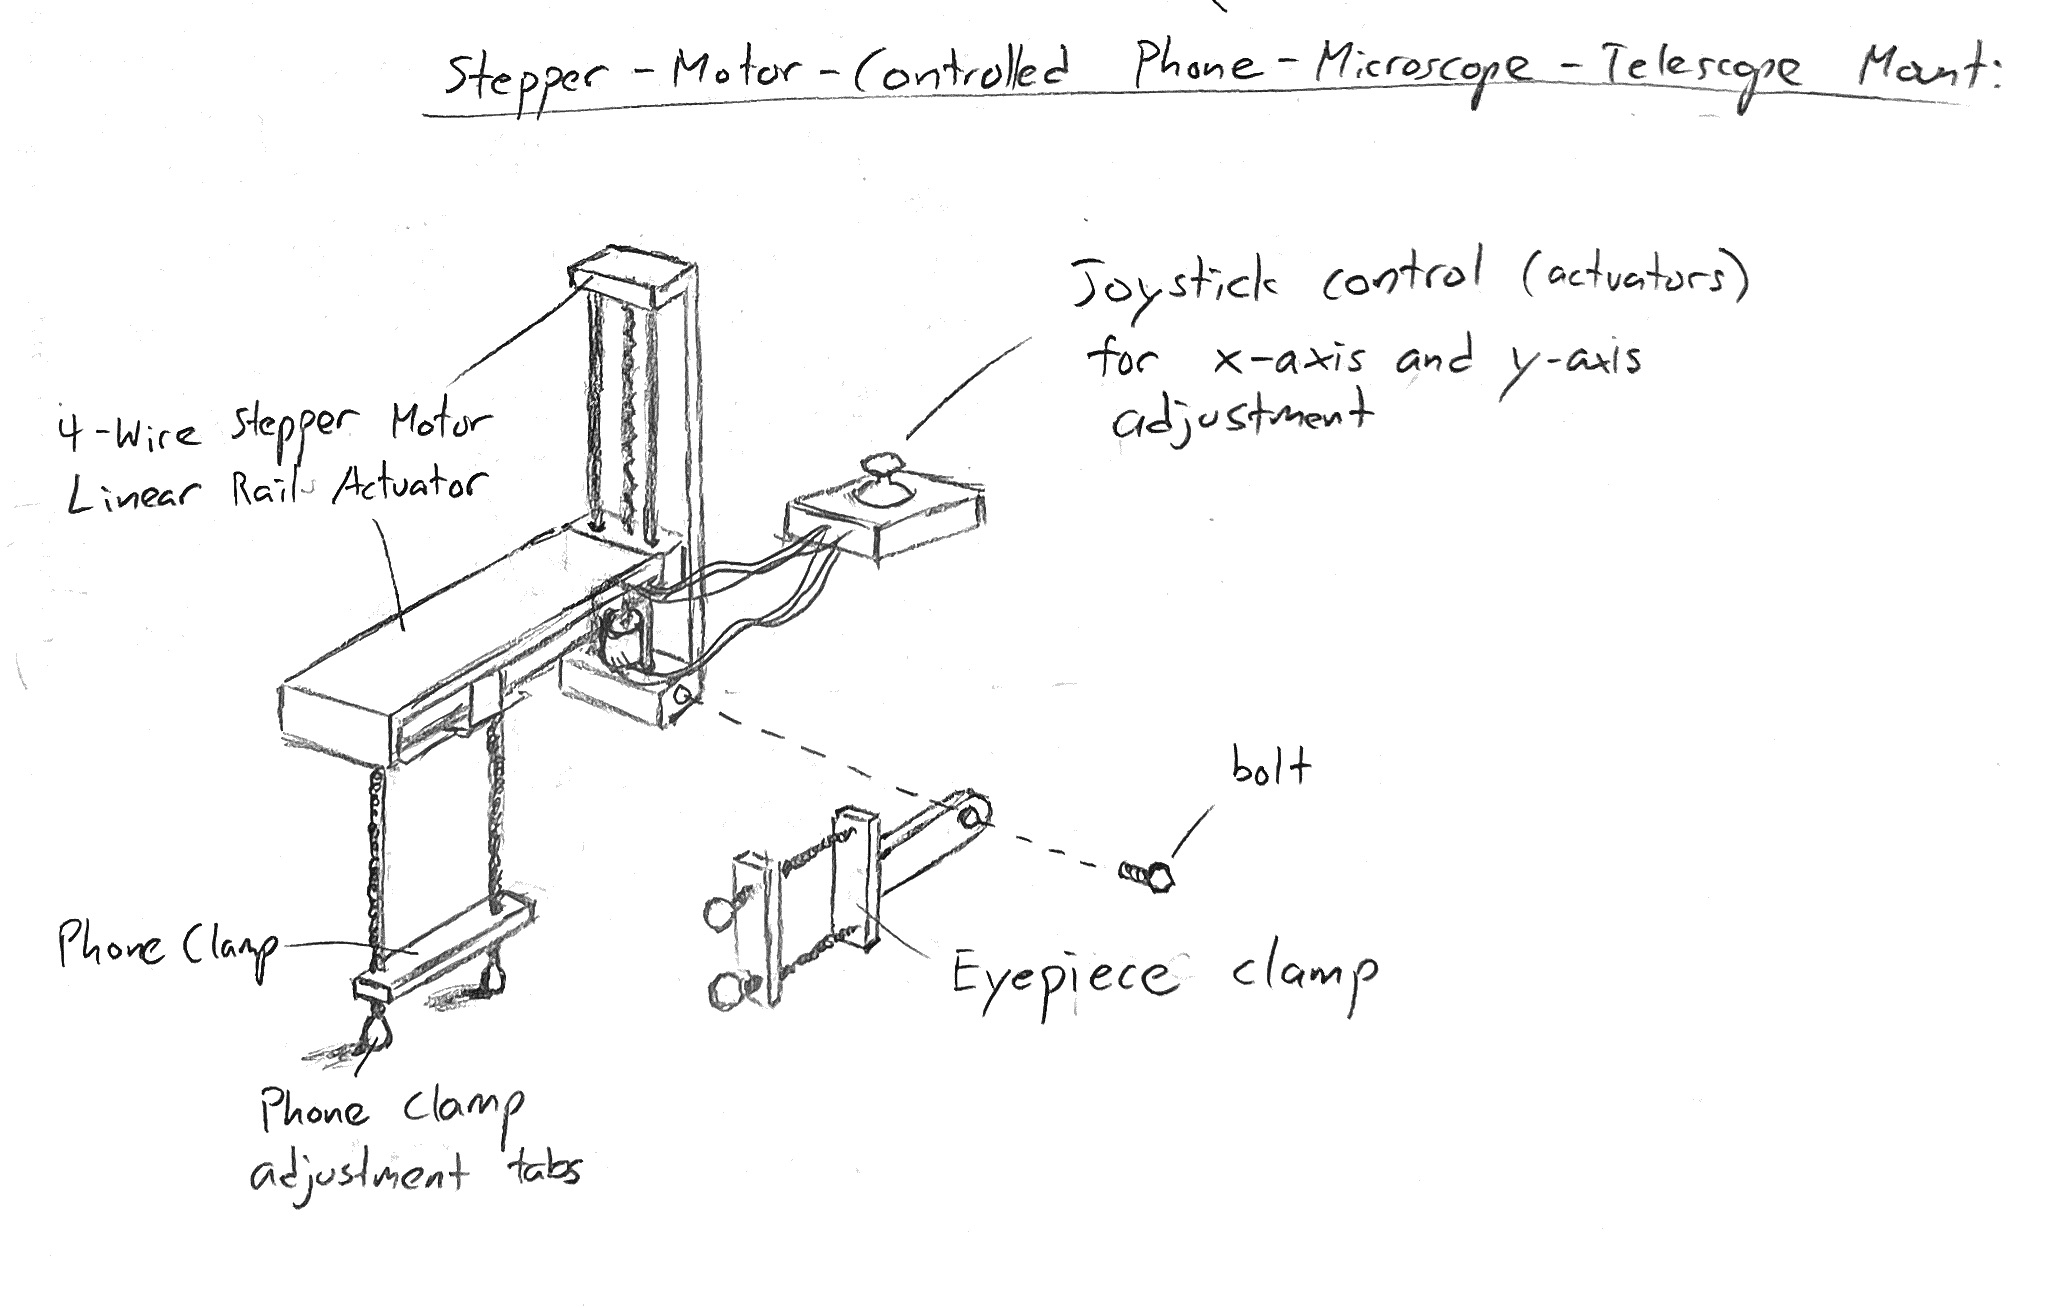 Stepper-Motor-Controlled Phone-Microscope-Telescope Mount:
Joystick control (actuators)
for x-axis and y-axis
adjustment
4-Wire Stepper Motor
Linear Rail Actuator
bolt
Phone Clamp
Eyepiece clamp
Phone Clamp
adjustment tabs